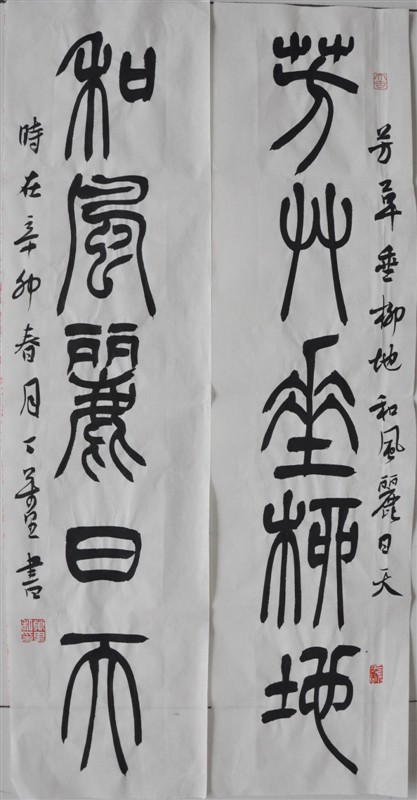 芳草垂柳地和風麗日天
芳艸垂柳地
和風麗日天
時在辛卯春月丁萬里書